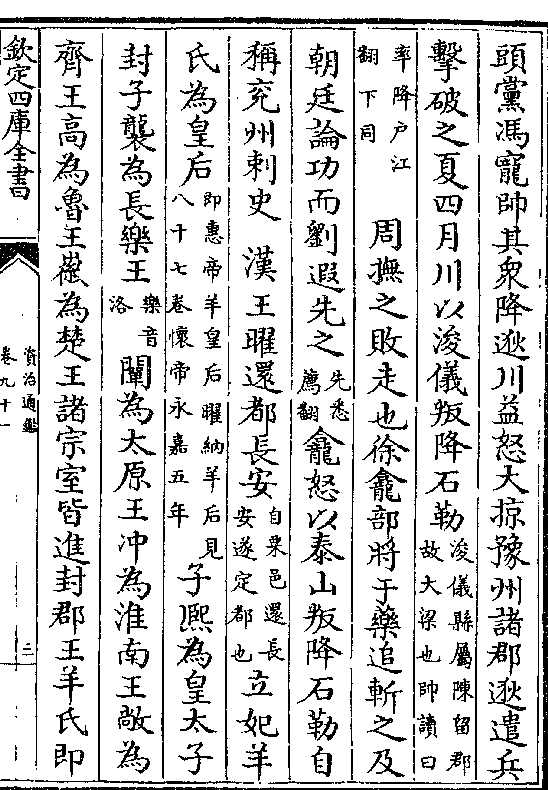 頭黨馮寵帥其衆降逖川益怒大掠豫州諸郡逖遣兵
擊破之夏四月川以浚儀叛降石勒浚儀縣屬陳留郡故大梁也帥讀曰
率降户江翻下同周撫之敗走也徐龕部將于藥追斬之及
朝廷論功而劉遐先之先悉薦翻龕怒以泰山叛降石勒自
稱兖州刺史漢王曜還都長安自粟邑還長安遂定都也立妃羊
氏為皇后即惠帝羊皇后曜納羊后見八十七卷懷帝永嘉五年子熙為皇太子
封子襲為長樂王樂音洛闡為太原王沖為淮南王敞為
齊王高為魯王徽為楚王諸宗室皆進封郡王羊氏即
欽定四庫全書
資治通鑑
卷九十一
三